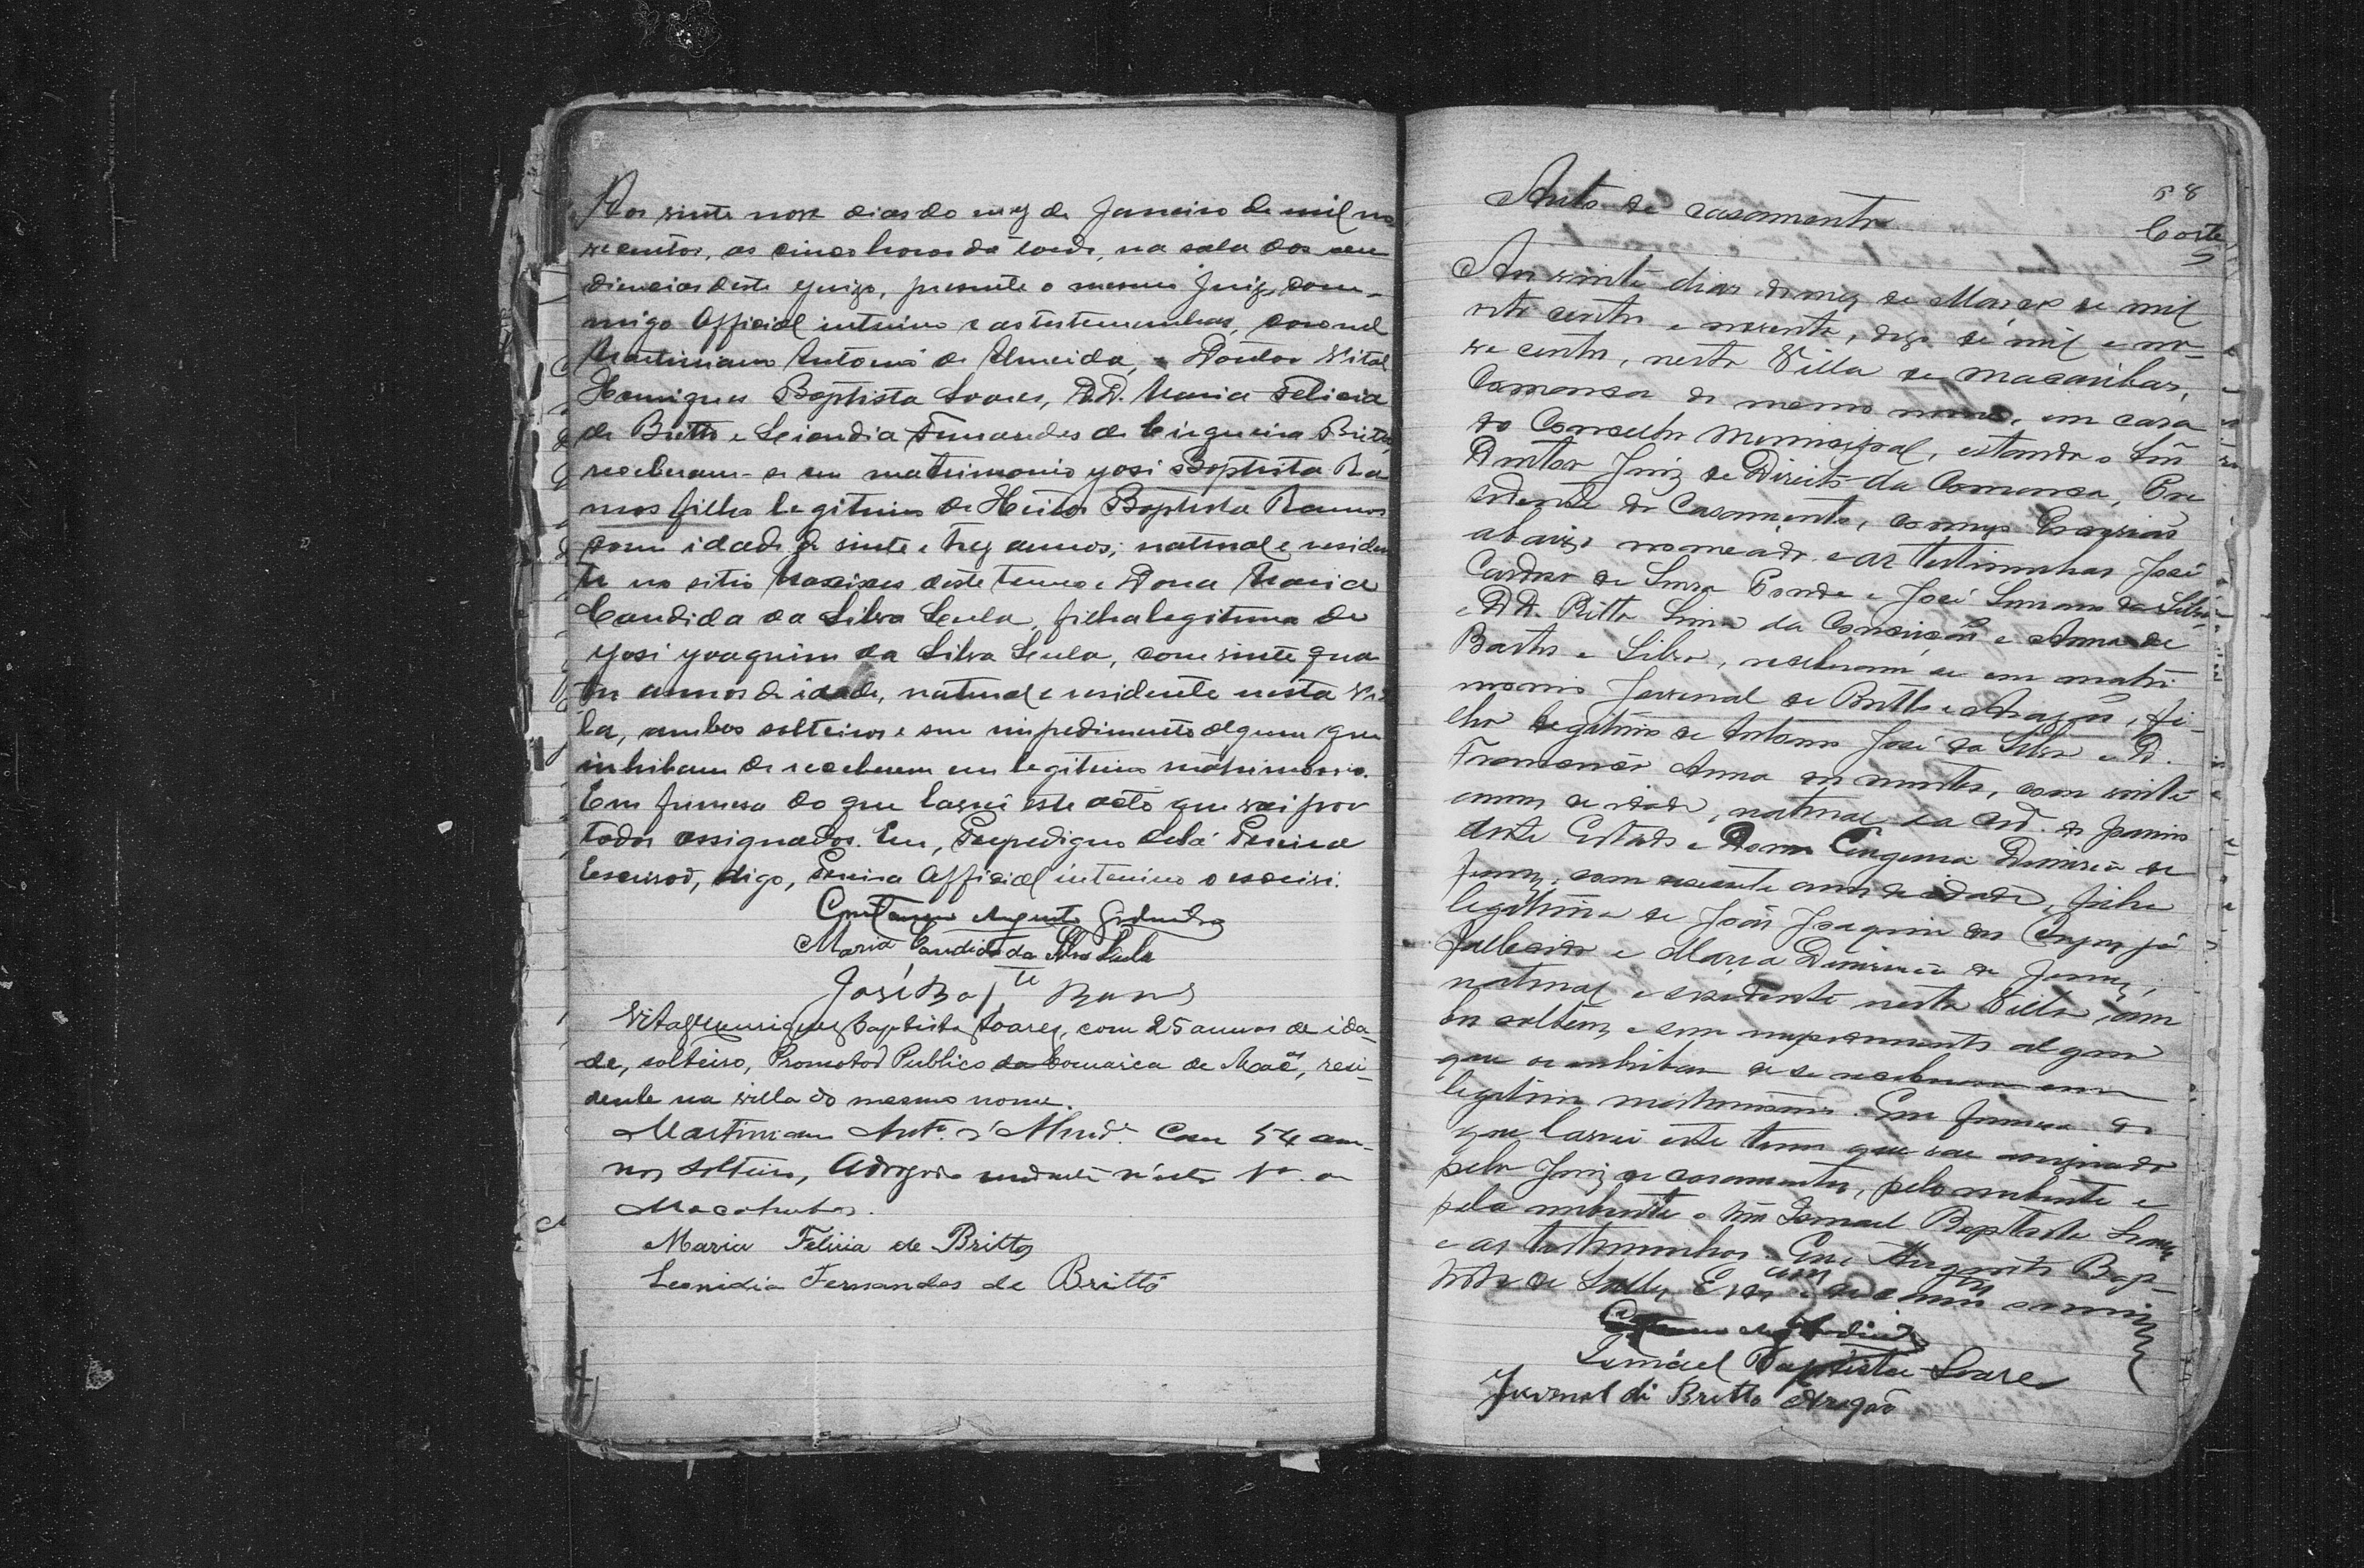 Aos vinte nove dias do mez de Janeiro de mil no
vecentos, as cinco horas da tarde, na sala das au
diencias deste Juizo, presente o mesmo Juiz, com-
migo Official interino e as testemunhas, coronel
Martiniano Antonio de Almeida, e Doutor Vital
Henriques Baptista Soares, DD. Maria Felicia
de Britto e Leonidia Fernandes de Cirqueira Britto,
receberam-se em matrimonio José Baptista Ra
mos filho legitimo de Heitor Baptista Ramos
com idade de vinte e trez annos, natural e residen
te no sitio deste termo e Dona Maria
Candida da Silva Leula, filha legitima de
José Joaquim da Silva Leula, com vinte qua
tro annos de idade, natural e residente nesta Vil
la, ambos solteiros e sem impedimento algum que
inhibam de receberem em legitimo matrimonio.
Em firmeza do que lavrei este acto que vai por
todos assignados. Eu, Pereira
Escrivão, digo, Pereira Official interino o escrivi.
Augusto
Maria Candida da Silva Leula
José Bapte Ramos
Vital Henriques Baptista Soares, com 25 annos de ida-
de, solteiro, Promotor Publico da Comarca de Macas, resi-
dente na villa do mesmo nome.
Martiniano Anto d'Almda Com 54 an-
nos solteiro, Advogado residente n'esta Va de
Macahubas.
Maria Felicia de Britto
Leonidia Fernandes de Britto
58
Auto de casamento
Corte
Aos vinte dias do mez de Março de mil
oito centos e noventa, digo de mil e no-
ve centos, nesta Villa de Macaúbas,
Comarca do mesmo nome, em casa
do Conselho Municipal, estando o Snr
Doutor Juiz de Direito da Comarca, Pre
sidente do Casamento, commigo Escrivão
abaixo nomeado e as testimunhas José
Cardoso de Sousa e José da Silva
e DD. Ritta Lima da Conceição e Anna de
Bastos e Silva, receberam se em matri
monio Juvenal de Britto e Aragão, fi-
lho legitimo de Antonio José da Silva e D.
Anna com vinte
annos de idade, natural
deste Estado e Dona de
Jesus, com annos de idade, filha
legitima de João Joaquim já
fallecido e Maria de Jesus,
natural e residente nesta Villa, am
bos solteiros e sem impedimento algum
que os inhibam de se receberem em
legitimo matrimonio. Em firmeza do
que lavrei este termo que vae assignado
pelo Juiz de casamentos, pelo nubente e
pela nubente o Snr Ismael Baptista Soares
e as testimunhas. Eu Augusto Bap-
tista de
Ismael Baptista Soares
Juvenal di Britto Aragão